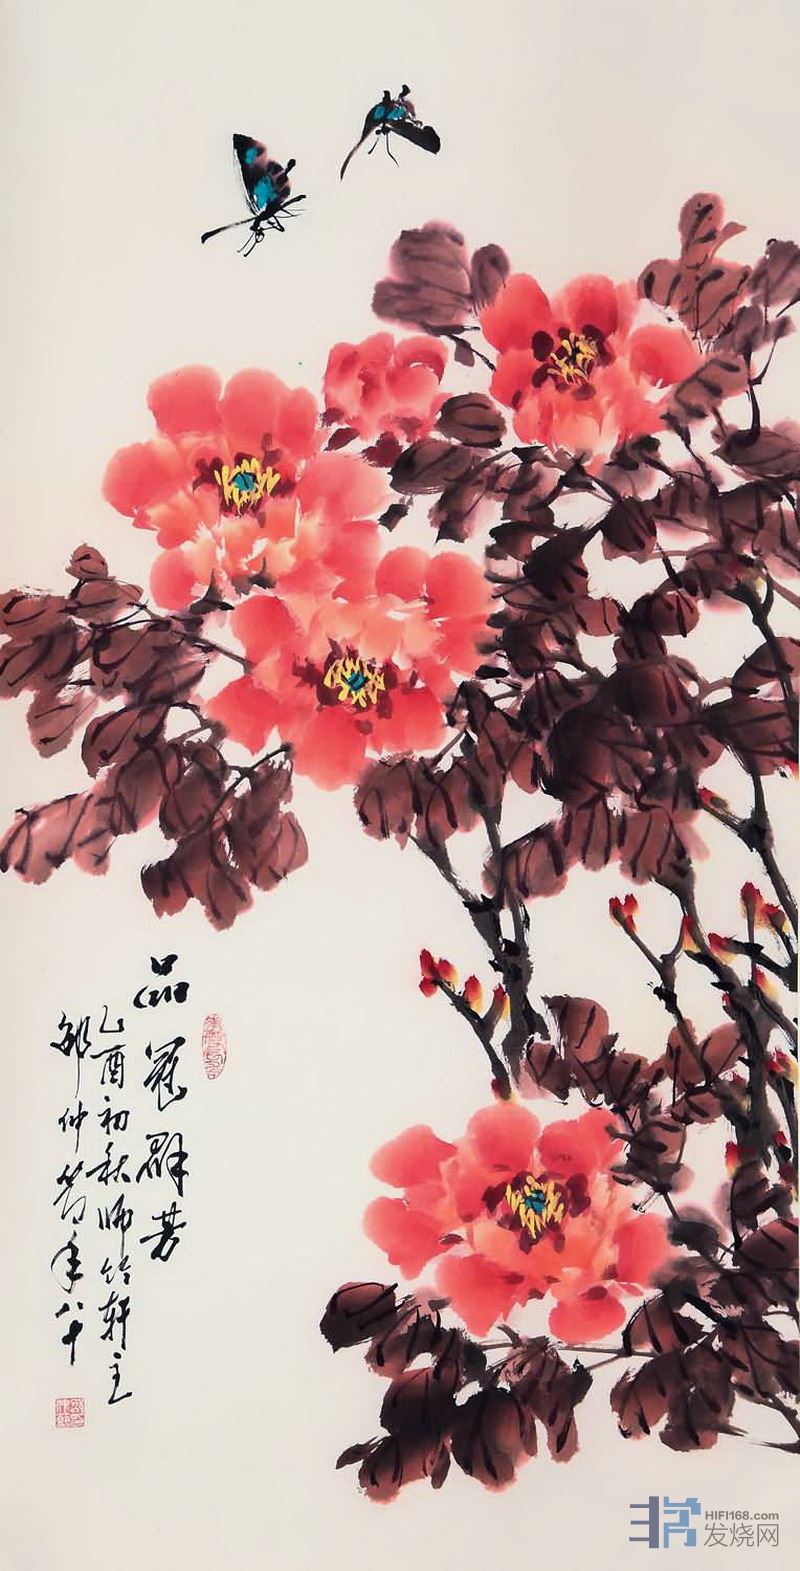 品冠群芳
乙酉初秋师竹轩主
邵仲节年八十
HIFI168.com
发烧网